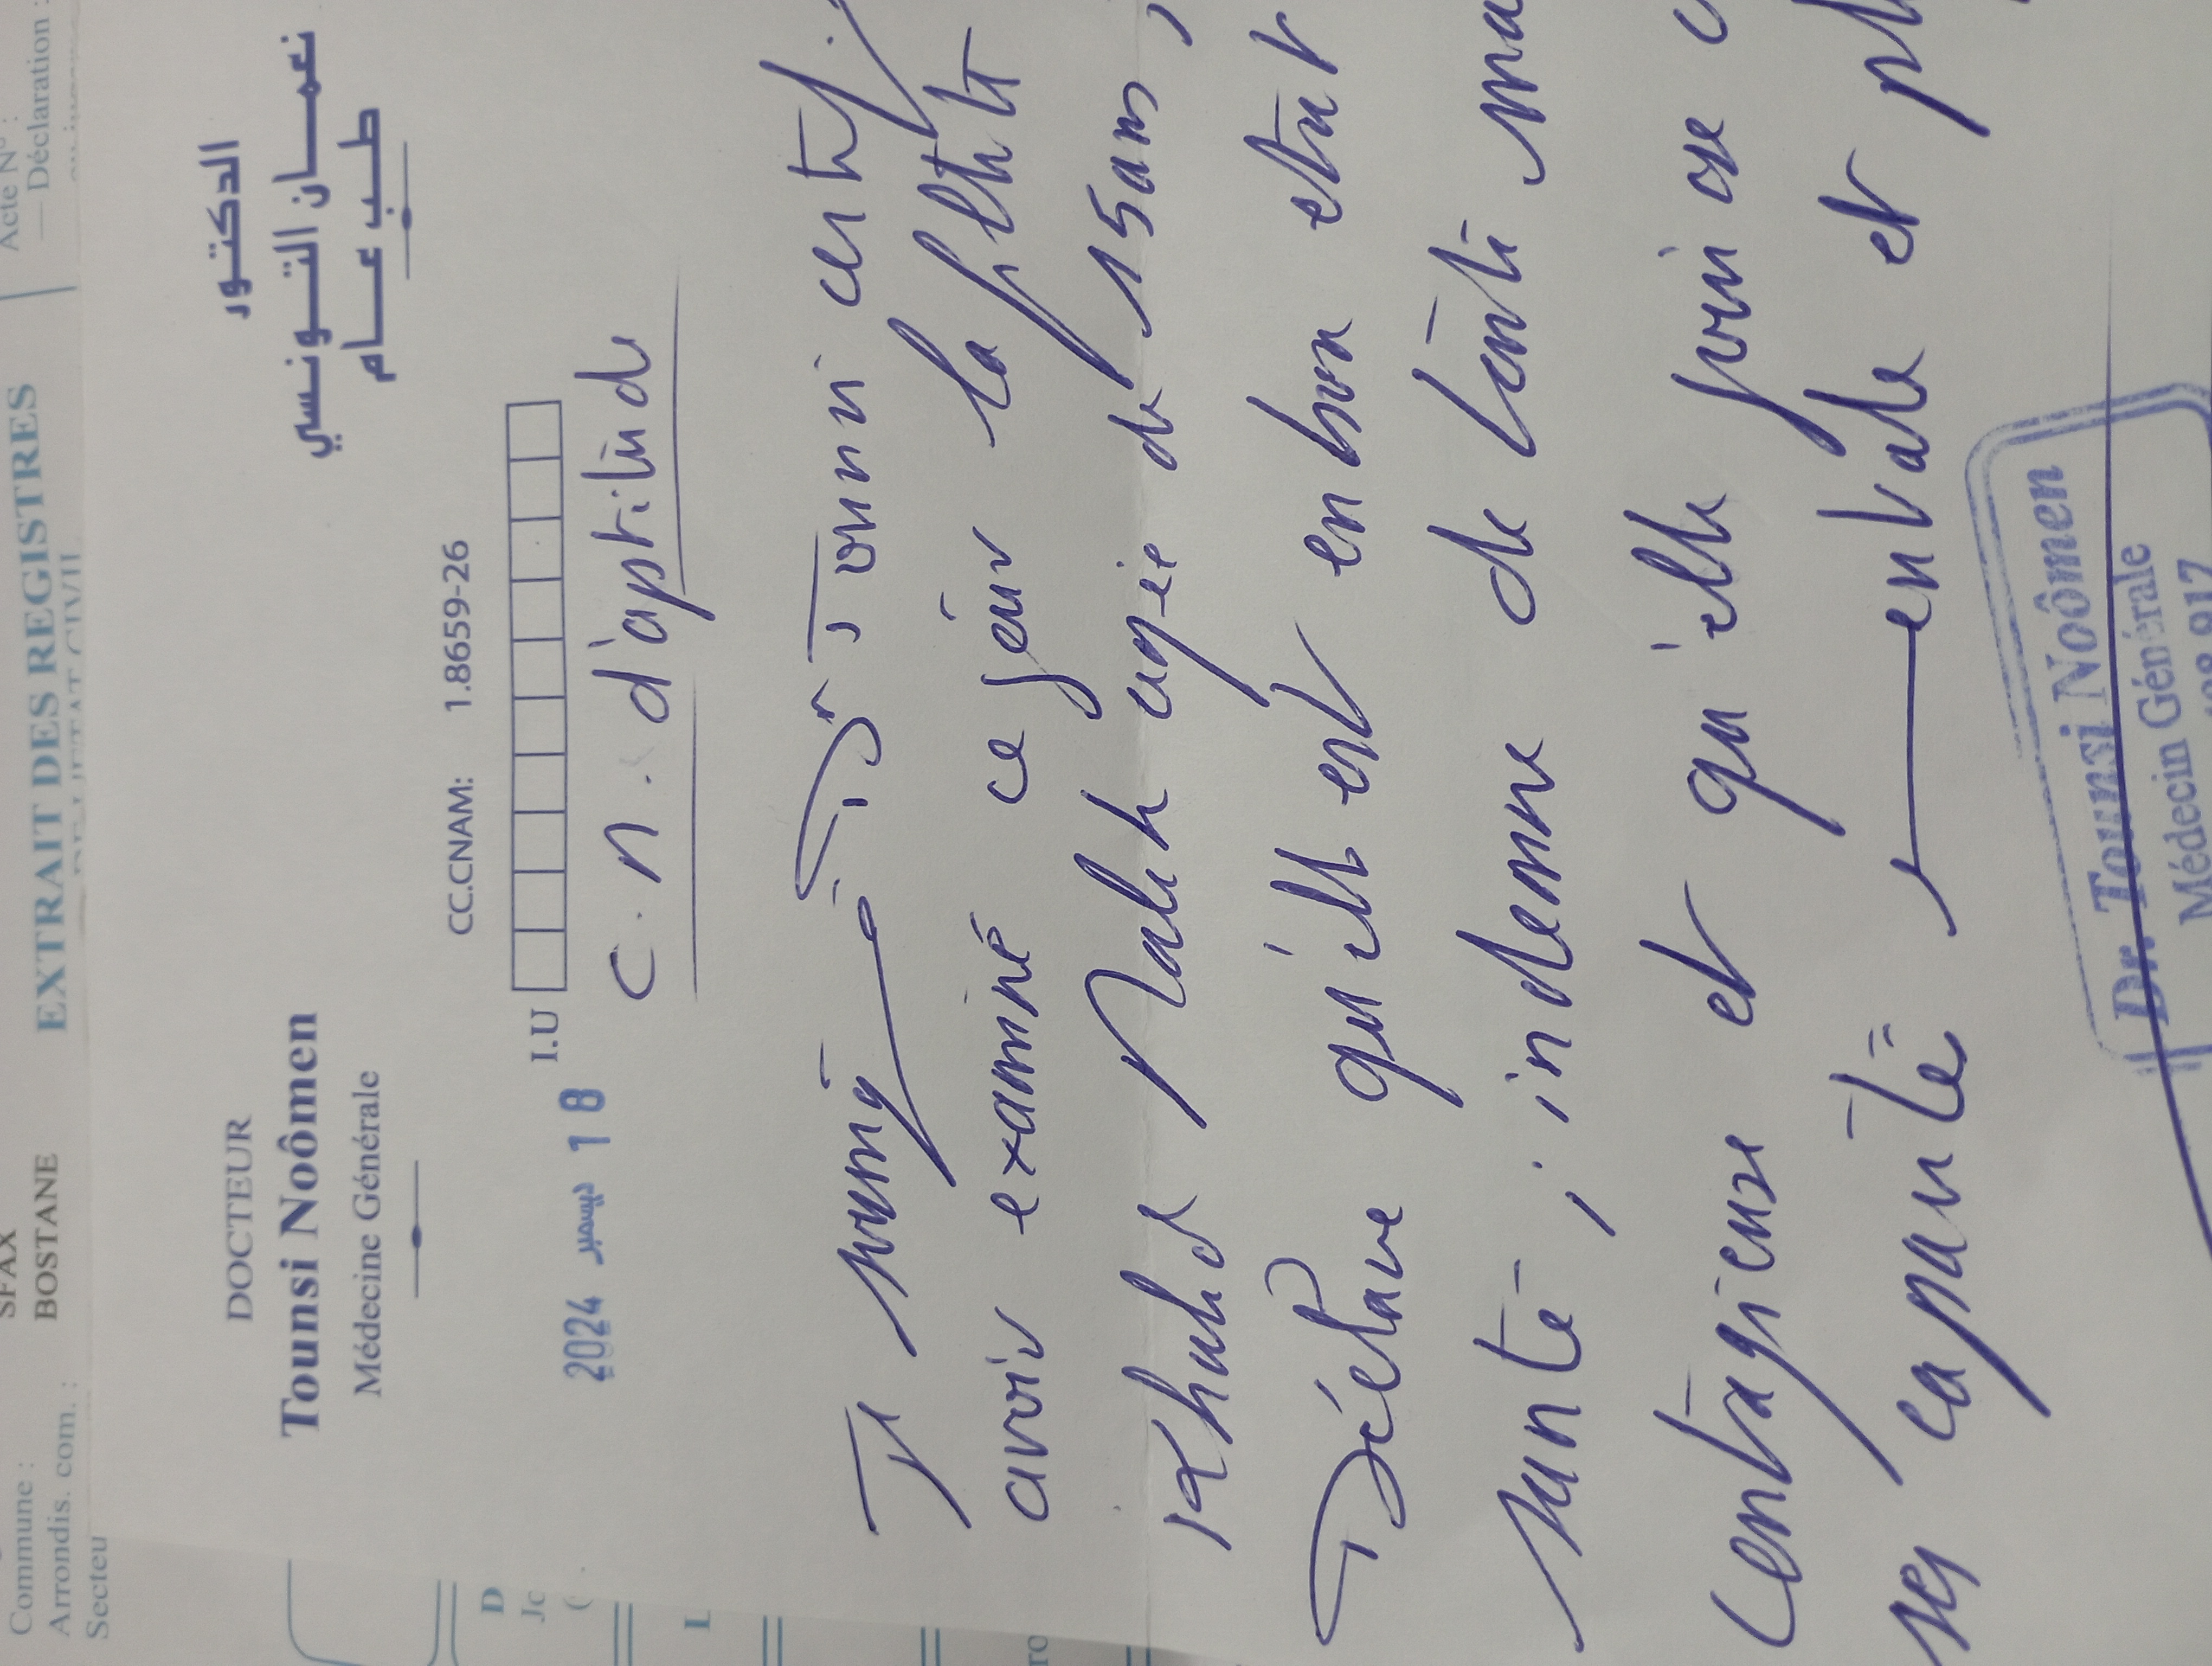 Acte N° :
— Déclaration :
EXTRAIT DES REGISTRES
SFAX
BOSTANE
Commune :
Arrondis. com. :
Secteu
DOCTEUR
Tounsi Noômen
Médecine Générale
الدكتور
نعمان التونسي
طب عام
CC.CNAM: 1.8659-26
I.U
18 ديسمبر 2024
C.n. d'aptitude
Je soussigné Dr Tounsi certif
avoir examiné ce jour la fillette
Malek agée de 15 ans,
Déclare qu'elle est en bon état
santé, indemne de toute ma
contagieuse et qu'elle jouit de
ses capacité entale et ph
Dr. Tounsi Noômen
Médecin Générale